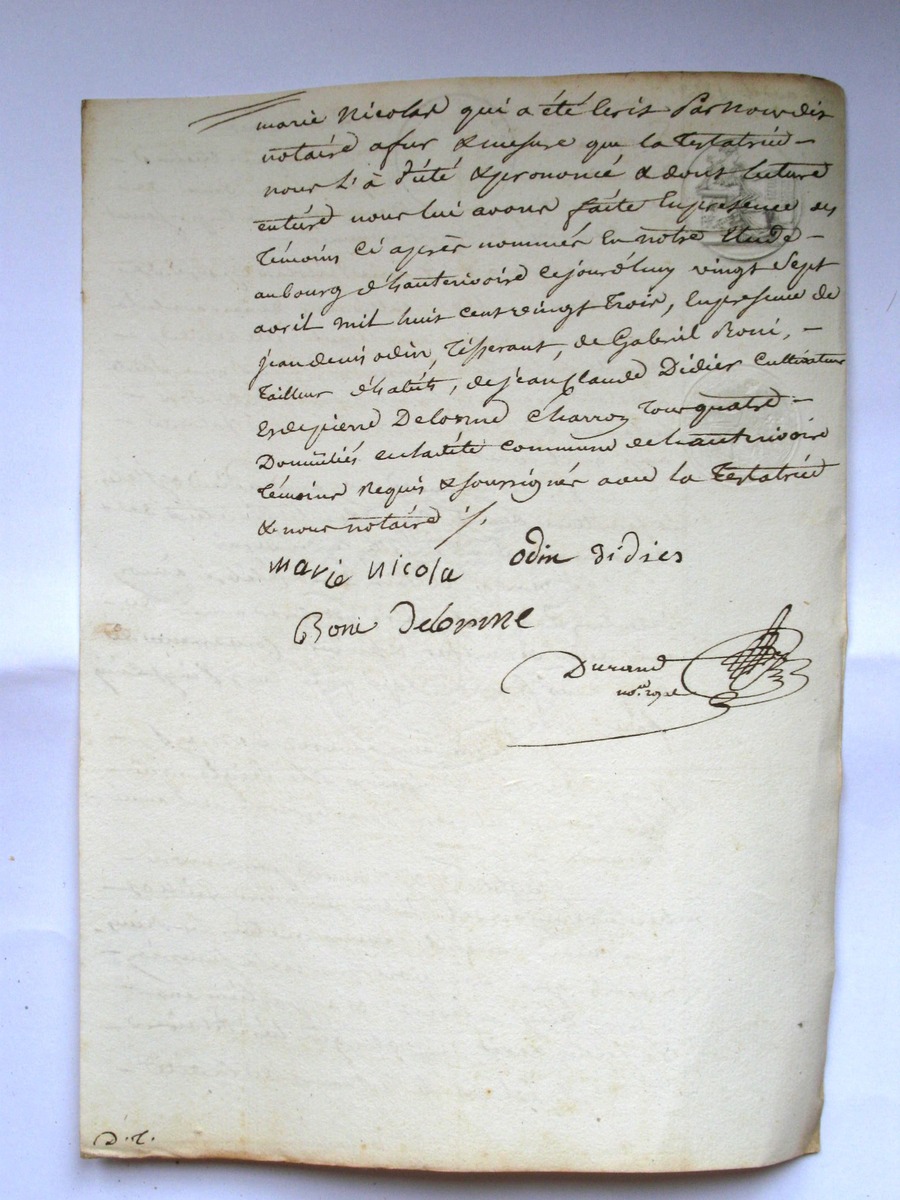 marie Nicolas qui a été écrit Par nous dit
notaire a fur & mesure que la Testatrice –
nous L'à dicté & prononcé & dont lecture
entière nous lui avons faite En presence des
Témoins Ci après nommés En notre Etude –
au bourg d'hauterivoire Cejourd'huy vingt Sept
avril mil huit cent vingt Trois, En presence de
jean denis odin, Tisserant, de Gabriel Boni, –
Tailleur d'habits, de jean Claude Didier Cultivateur
Et de pierre Delorme Charron Tous quatre –
Domiciliés en la dite commune de hauterivoire
Témoins Requis & soussignés avec la Testatrice
& nous notaire /.
marie nicola odin didier
Boni delorme
Durand
no.re royal
D. T.